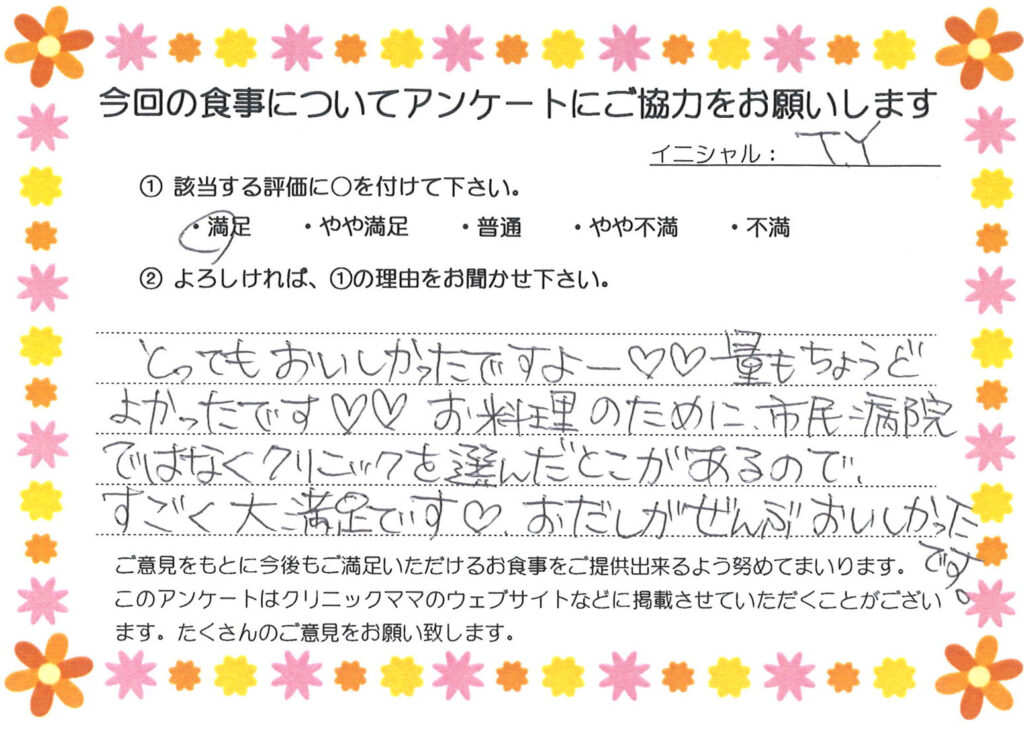 今回の食事についてアンケートにご協力をお願いします
イニシャル： T.Y
① 該当する評価に〇を付けて下さい。
・満足 ・やや満足 ・普通 ・やや不満 ・不満
② よろしければ、①の理由をお聞かせ下さい。
とってもおいしかったですよー♡♡ 量もちょうど
よかったです♡♡ お料理のために、市民病院
ではなくクリニックを選んだとこがあるので、
すごく大満足です♡、おだしがぜんぶおいしかった
です。
ご意見をもとに今後もご満足いただけるお食事をご提供出来るよう努めてまいります。
このアンケートはクリニックママのウェブサイトなどに掲載させていただくことがござい
ます。たくさんのご意見をお願い致します。